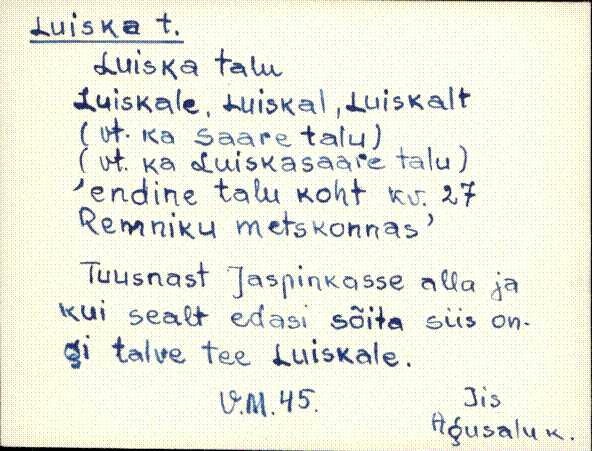 Luiska t.
Luiska talu
Luiskale, Luiskal, Luiskalt
(vt. ka Saare talu)
(vt. ka Luiskasaare talu)
'endine talu koht kv. 27
Remniku metskonnas'
Tuusnast Jaspinkasse alla ja
kui sealt edasi sõita siis on-
gi talve tee Luiskale.
V.M. 45.
Jis
Agusalu k.